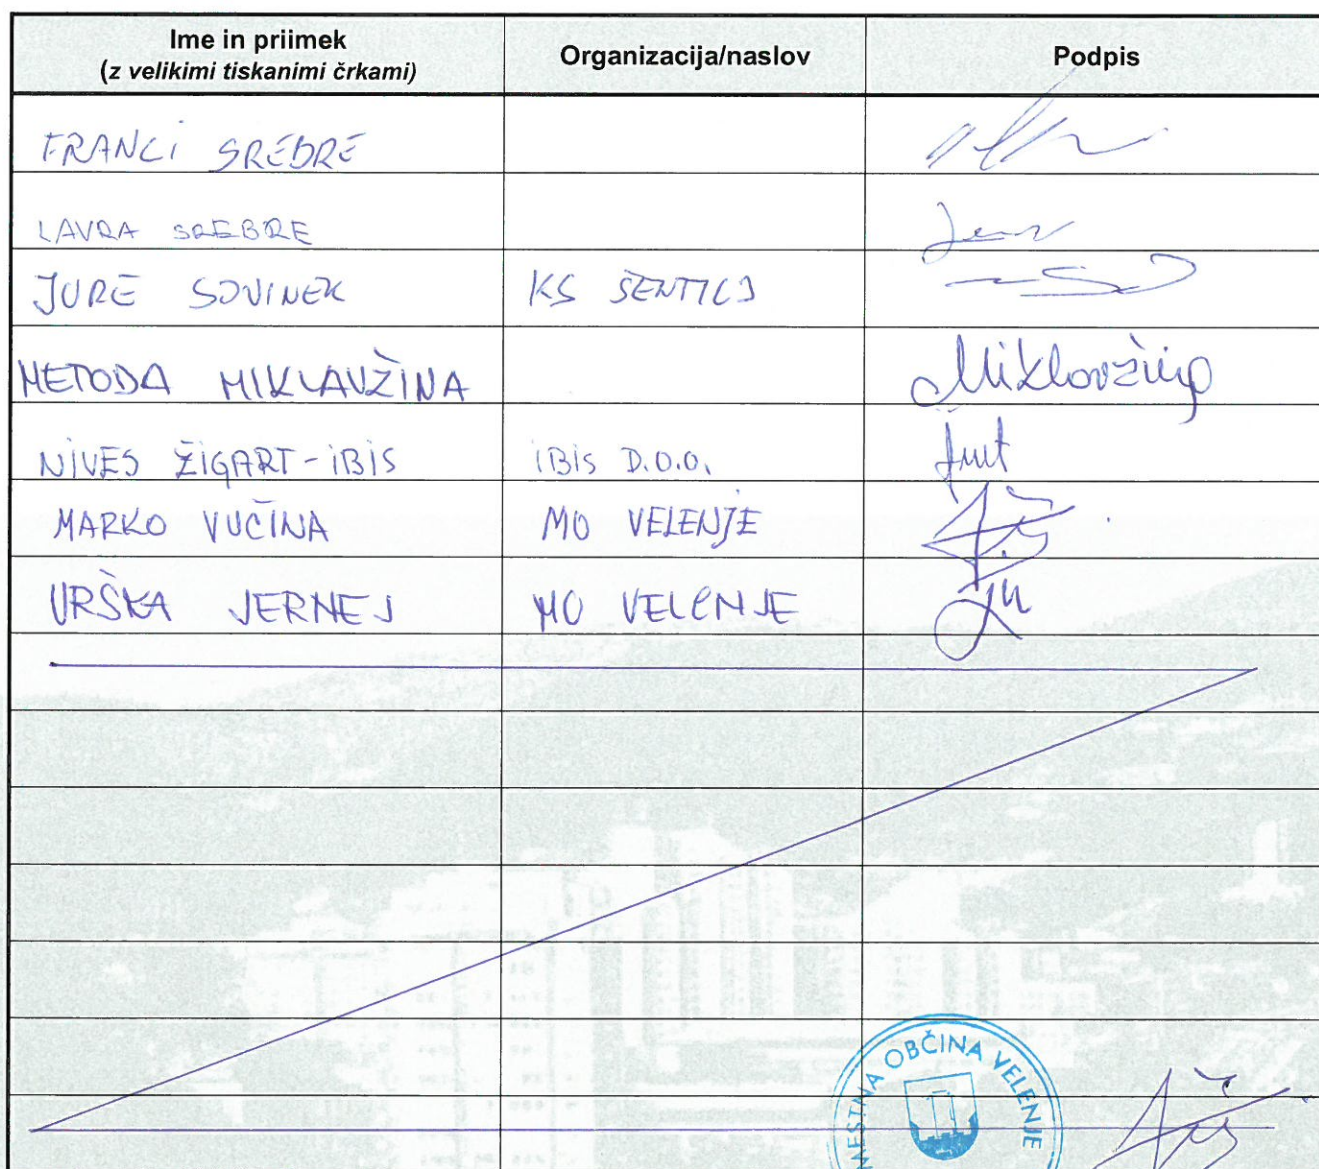 Ime in priimek
(z velikimi tiskanimi črkami)
Organizacija/naslov
Podpis
FRANCI SREBRE
LAVRA SREBRE
JURE SOVINEK KS ŠENTILJ
METODA MIKLAVŽINA Miklavžina
NIVES ŽIGART-IBIS IBIS D.O.O.
MARKO VUČINA MO VELENJE
URŠKA JERNEJ MO VELENJE
MESTNA OBČINA VELENJE